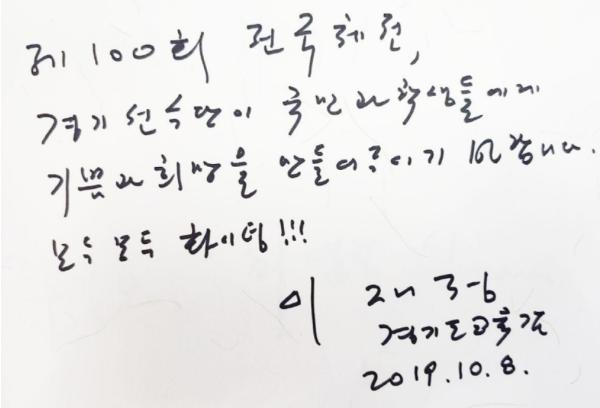 제100회 전국체전,
경기 선수단이 국민과 학생들에게
기쁨과 희망을 만들어주시기 바랍니다.
모두 모두 화이팅!!!
이 재정
경기도교육감
2019.10.8.